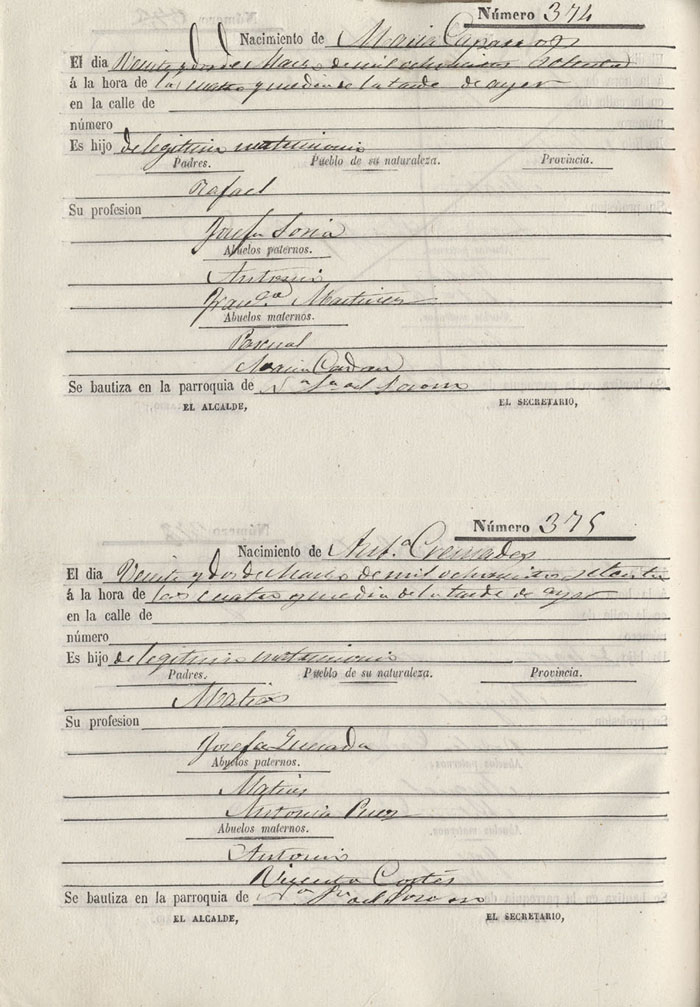 Número 374
Nacimiento de Maria Caparros
El dia Veinte y dos de Marzo de mil ochocientos setenta
á la hora de las cuatro y media de la tarde de ayer
en la calle de
número
Es hijo de legitimo matrimonio
Padres. Pueblo de su naturaleza. Provincia.
Rafael
Su profesion
Josefa Soria
Abuelos paternos.
Antonio
Franca Martinez
Abuelos maternos.
Pascual
Maria
Se bautiza en la parroquia de Na Sa del
EL ALCALDE, EL SECRETARIO,
Número 375
Nacimiento de Anta Cremades
El dia Veinte y dos de Marzo de mil ochocientos setenta
á la hora de las cuatro y media de la tarde de ayer
en la calle de
número
Es hijo de legitimo matrimonio
Padres. Pueblo de su naturaleza. Provincia.
Matias
Su profesion
Josefa Quesada
Abuelos paternos.
Matias
Antonia Perez
Abuelos maternos.
Antonio
Vicenta Cortés
Se bautiza en la parroquia de Na Sra del
EL ALCALDE, EL SECRETARIO,